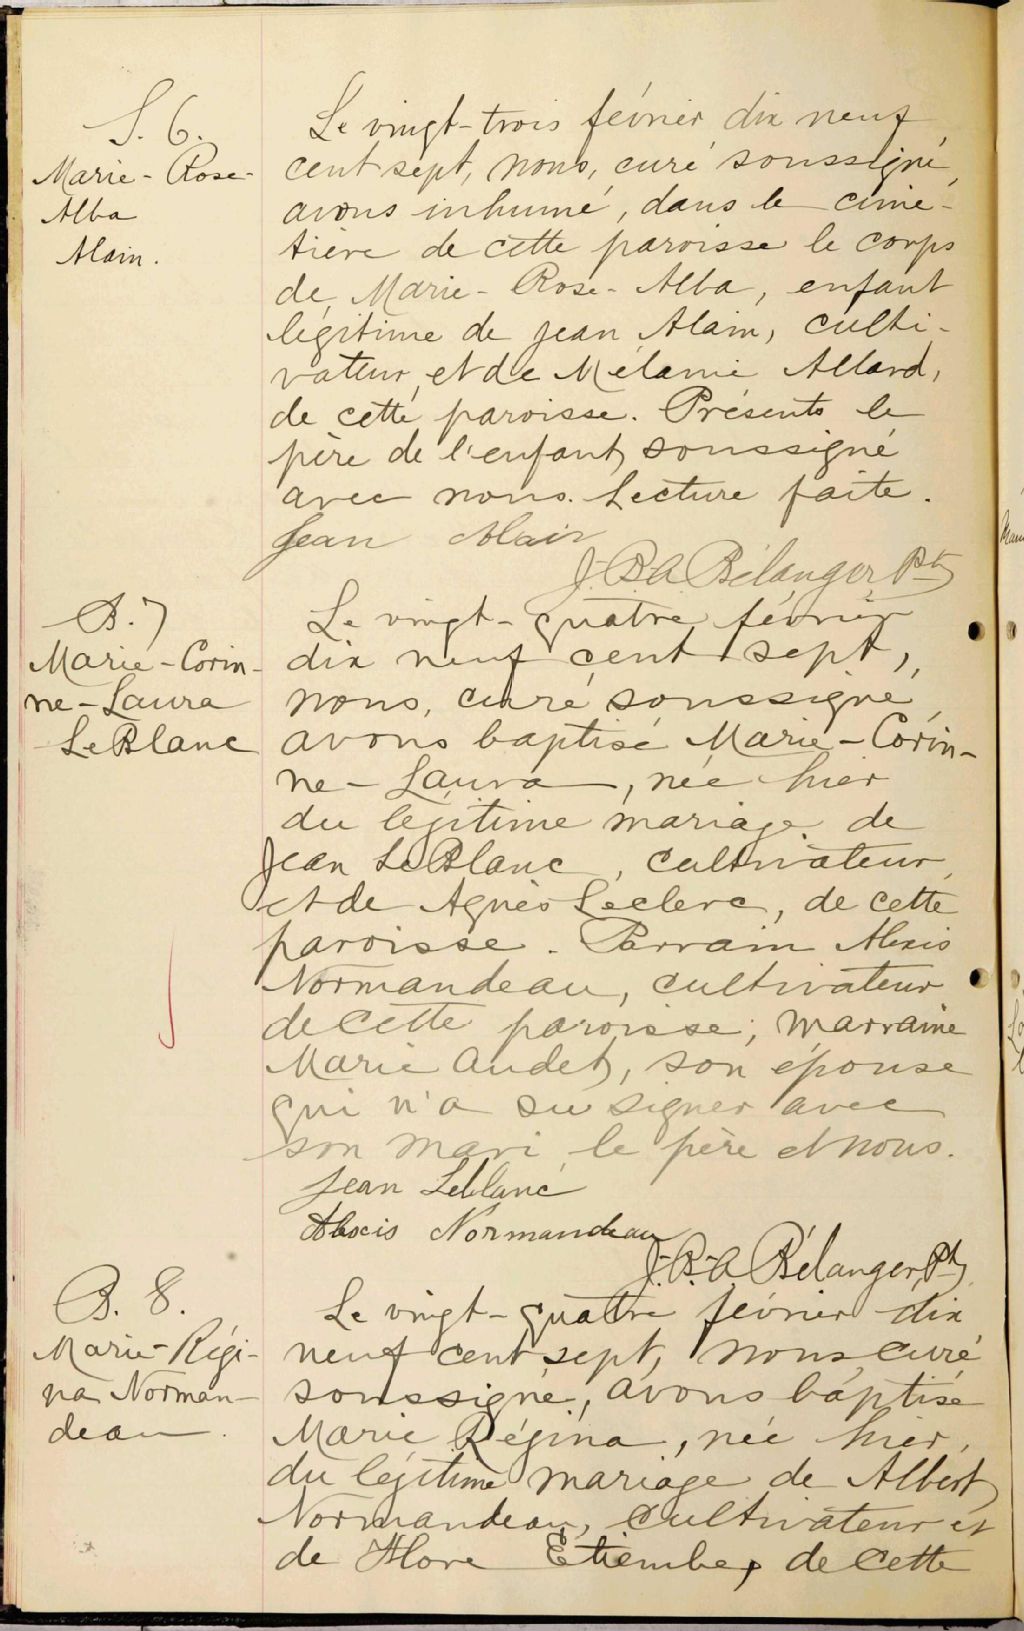 S. 6.
Marie-Rose-
Alba
Alain.
Le vingt-trois février dix neuf
cent sept, nous, curé soussigné,
avons inhumé, dans le cime-
tière de cette paroisse le corps
de Marie-Rose-Alba, enfant
légitime de Jean Alain, culti-
vateur, et de Mélanie Allard,
de cette paroisse. Présents le
père de l'enfant, soussigné
avec nous. Lecture faite.
Jean Alain
J.-B.-A. Bélanger, Ptr
B. 7
Marie-Corin-
ne-Laura
LeBlanc
Le vingt-quatre février
dix neuf cent sept,
nous, curé soussigné,
avons baptisé Marie-Corin-
ne-Laura, née hier
du légitime mariage de
Jean LeBlanc, cultivateur,
et de Agnès Leclerc, de cette
paroisse. Parrain Alexis
Normandeau, cultivateur
de cette paroisse; marraine
Marie Audet, son épouse
qui n'a su signer avec
son mari, le père et nous.
Jean Leblanc
Alexis Normandeau
J.-B.-A. Bélanger, Pt
B. 8.
Marie-Régi-
na Norman-
deau.
Le vingt-quatre février dix
neuf cent sept, nous, curé
soussigné, avons baptisé
Marie Régina, née hier,
du légitime mariage de Albert
Normandeau, cultivateur et
de de cette